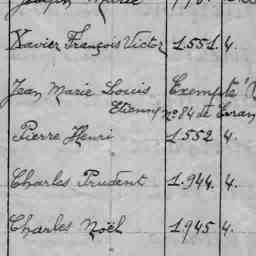 Joseph Marie
Xavier François Victor 1.551. 4.
Jean Marie Louis Exempté
Etienne n°84 de Evran
Pierre Henri 1552 4.
Charles Prudent 1.944. 4.
Charles Noël 1945 4.